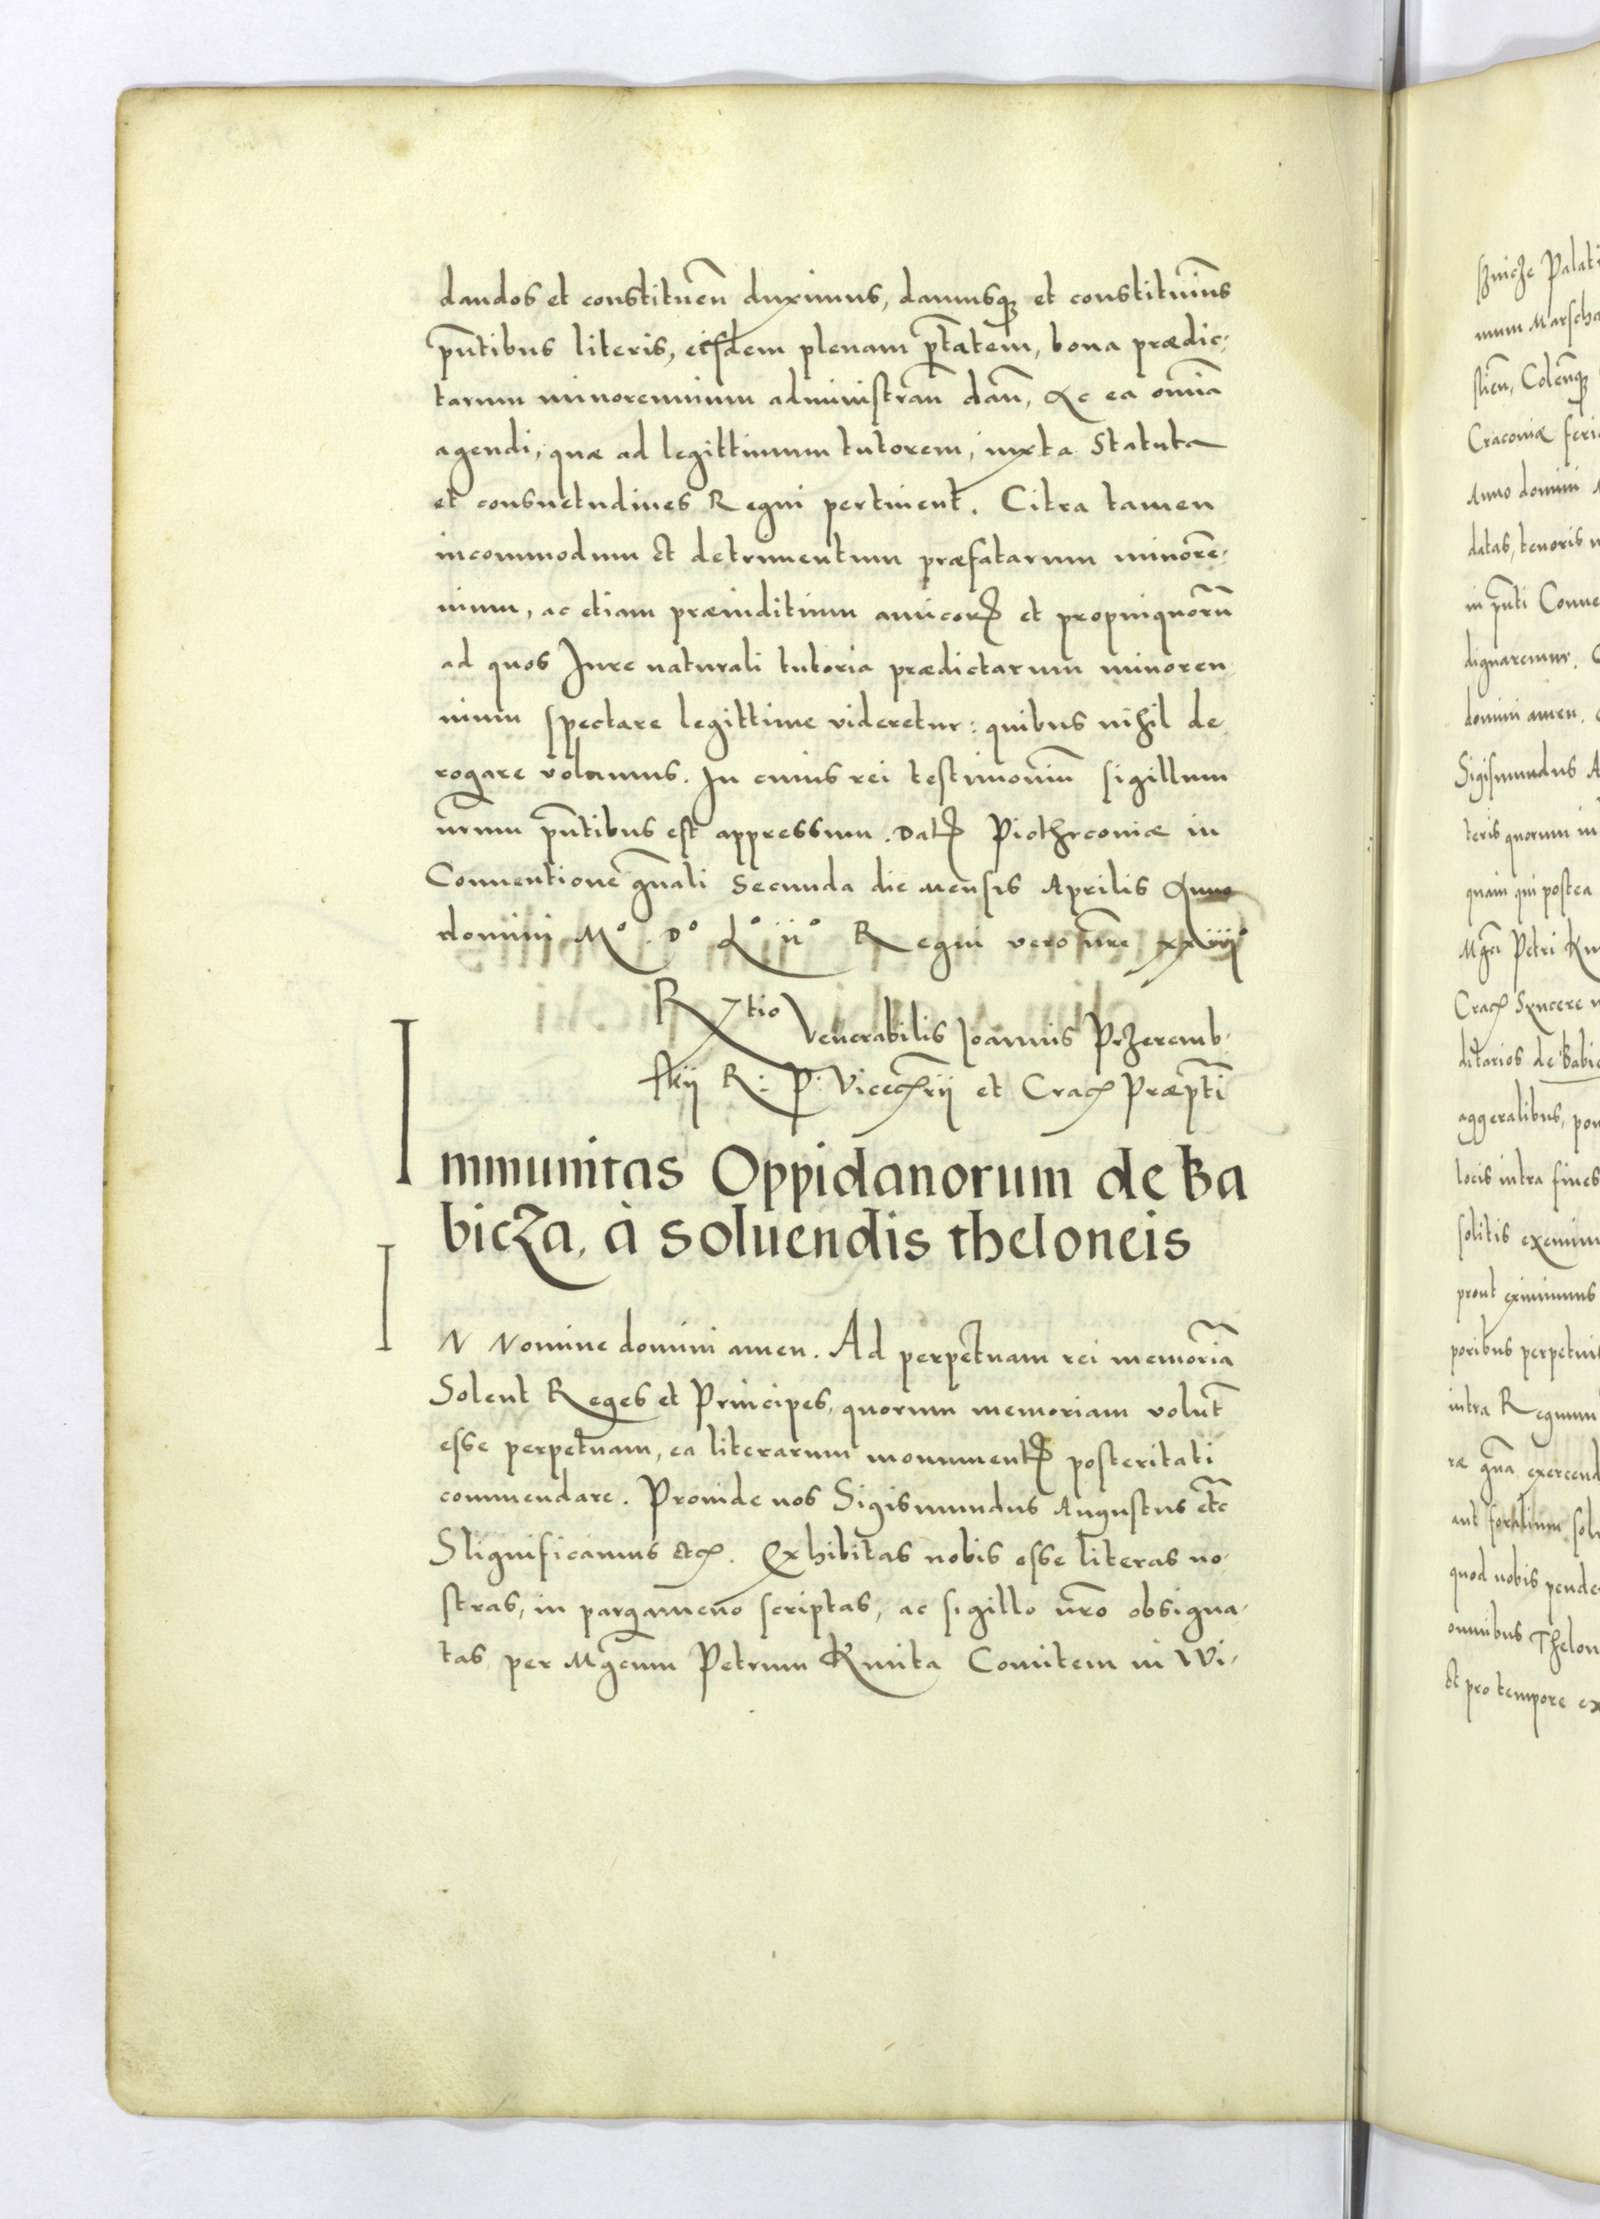 dandos et constituen̄ duximus, damusq̨ et constituim̄s
pn̄tibus literis, eisdem plenam pt̄atem, bona prædic-
tarum minorennium administran̄ dan̄, &c ea om̄ia
agendi, quæ ad legittimum tutorem, iuxta Statuta
et consuetudines Regni pertinent. Citra tamen
incommodum et detrimentum præfatarum minore-
nium, ac etiam præiuditium amicorꝝ et propinquorū
ad quos Jure naturali tutoria prædictarum minoren
nium spectare legittime videretur: quibus nihil de
rogare volumus. In cuius rei testimoniū sigillum
nr̄um pn̄tibus est appressum. Datꝝ Piothrconiæ in
Conuentione gn̄ali Secunda die mensis Aprilis Anno
domini Mº. Dº Lº iiº Regni vero nr̄e xxiijº
R̄tio Venerabilis Joannis Przeremb-
skij R: P: Vicecꝭrij et Cracꝭ Præpt̄i
Immunitas Oppidanorum de Ba
bicza, à soluendis theloneis
IN Nomine domini amen. Ad perpetuam rei memoriā
Solent Reges et Principes, quorum memoriam volut̄
esse perpetuam, ea literarum monumentꝭ posteritati
commendare. Proinde nos Sigismundus Augustus etc̄
Significamus etcꝭ. Exhibitas nobis esse literas no-
stras, in pargameno scriptas, ac sigillo nr̄o obsigna-
tas per Mgc̄um Petrum Kmita Comitem in Wi-
sznicze Palati
mum Marscha
Craconiæ feri
Anno domini
datas, tenoris
in pn̄ti Conue
dignaremur.
domini amen.
Sigismundus A
teris quorum in
quam qui postea
Petri Km
Cracꝭ Syncere
ditarios de Babic
aggeralibus, pon
locis intra fines
solitis eximim
prout eximimus
poribus perpetuit
intra Regnum
ræ gn̄a exercend
aut foralium sol
quod nobis pende
omnibus Thelon
et pro tempore ex